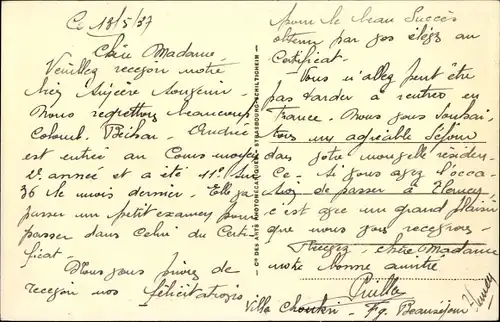 Ce 13/5/37
Chère Madame
Veuillez recevoir notre
très sincère souvenir.
Nous regrettons beaucoup
Colomb-Béchar. Andrée
est entrée au Cours moyen
2e année et a été 11e sur
36 le mois dernier. Elle va
passer un petit examen pour
passer dans celui du Certi
ficat.
Nous vous prions de
recevoir nos félicitations
pour le beau succès
obtenu par vos élèves au
Certificat.
Vous n'allez peut être
pas tarder à rentrer en
France. Nous vous souhai
tons un agréable séjour
dans votre nouvelle résiden
ce. Si vous avez l'occa
sion de passer à
c'est avec un grand plaisir
que nous vous recevrons.
Recevez, chère Madame
notre bonne amitié
Villa - Fg. Beauséjour
CIE DES ARTS PHOTOMÉCANIQUES - STRASBOURG-SCHILTIGHEIM